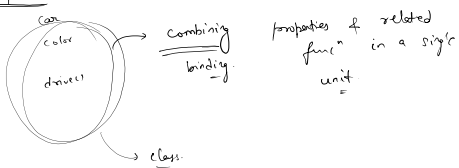 Car
color
drive()
combining
binding.
properties & related
funcⁿ in a single
unit
class.